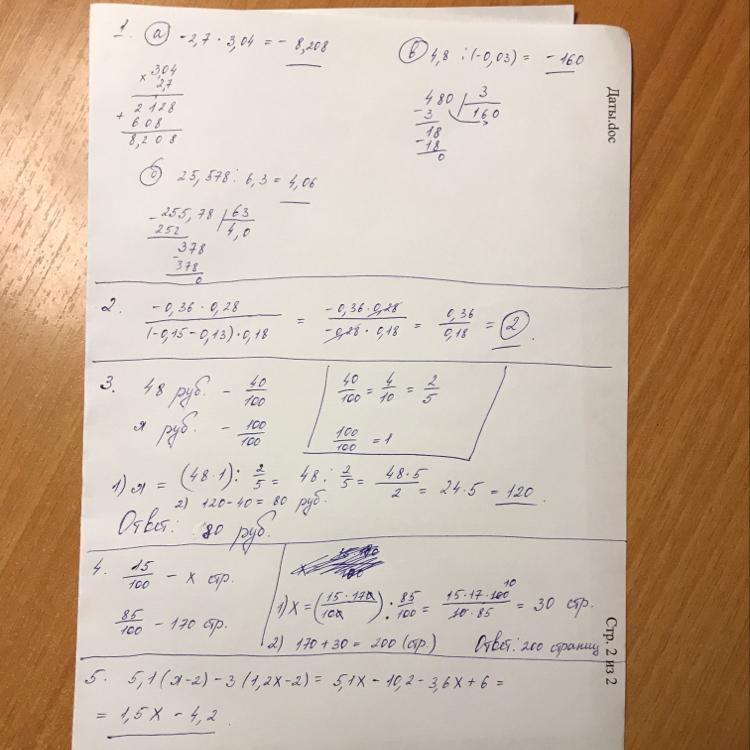 1. а) -2,7 · 3,04 = - 8,208
× 3,04
2,7
+ 2128
608
8,208
в) 4,8 : (-0,03) = - 160
480 | 3
- 3 160
18
- 18
0
б) 25,578 : 6,3 = 4,06
- 255,78 | 63
252 4,0
- 378
378
0
2. -0,36 · 0,28 / (-0,15 - 0,13) · 0,18 = -0,36 · 0,28 / -0,28 · 0,18 = 0,36 / 0,18 = 2.
3. 48 руб. - 40/100
х руб. - 100/100
40/100 = 4/10 = 2/5
100/100 = 1
1) х = (48 · 1) : 2/5 = 48 : 2/5 = 48 · 5 / 2 = 24 · 5 = 120.
2) 120 - 40 = 80 руб.
Ответ: 80 руб.
4. 15/100 - х стр.
85/100 - 170 стр.
1) х = (15 · 170 / 100) : 85/100 = 15 · 17 · 100 10 / 10 · 85 = 30 стр.
2) 170 + 30 = 200 (стр.) Ответ: 200 страниц
5. 5,1(х - 2) - 3(1,2х - 2) = 5,1х - 10,2 - 3,6х + 6 =
= 1,5х - 4,2.
Даты.doc
Стр. 2 из 2